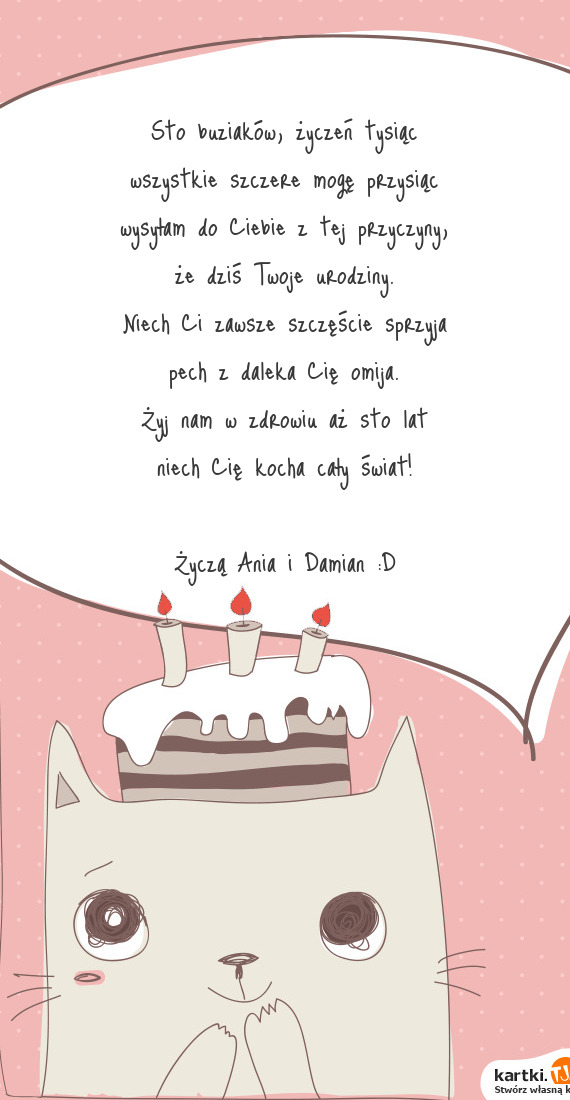 Sto buziaków, życzeń tysiąc
wszystkie szczere mogę przysiąc
wysyłam do Ciebie z tej przyczyny,
że dziś Twoje urodziny.
Niech Ci zawsze szczęście sprzyja
pech z daleka Cię omija.
Żyj nam w zdrowiu aż sto lat
niech Cię kocha cały świat!
Życzą Ania i Damian :D
kartki.TJ
Stwórz własną k